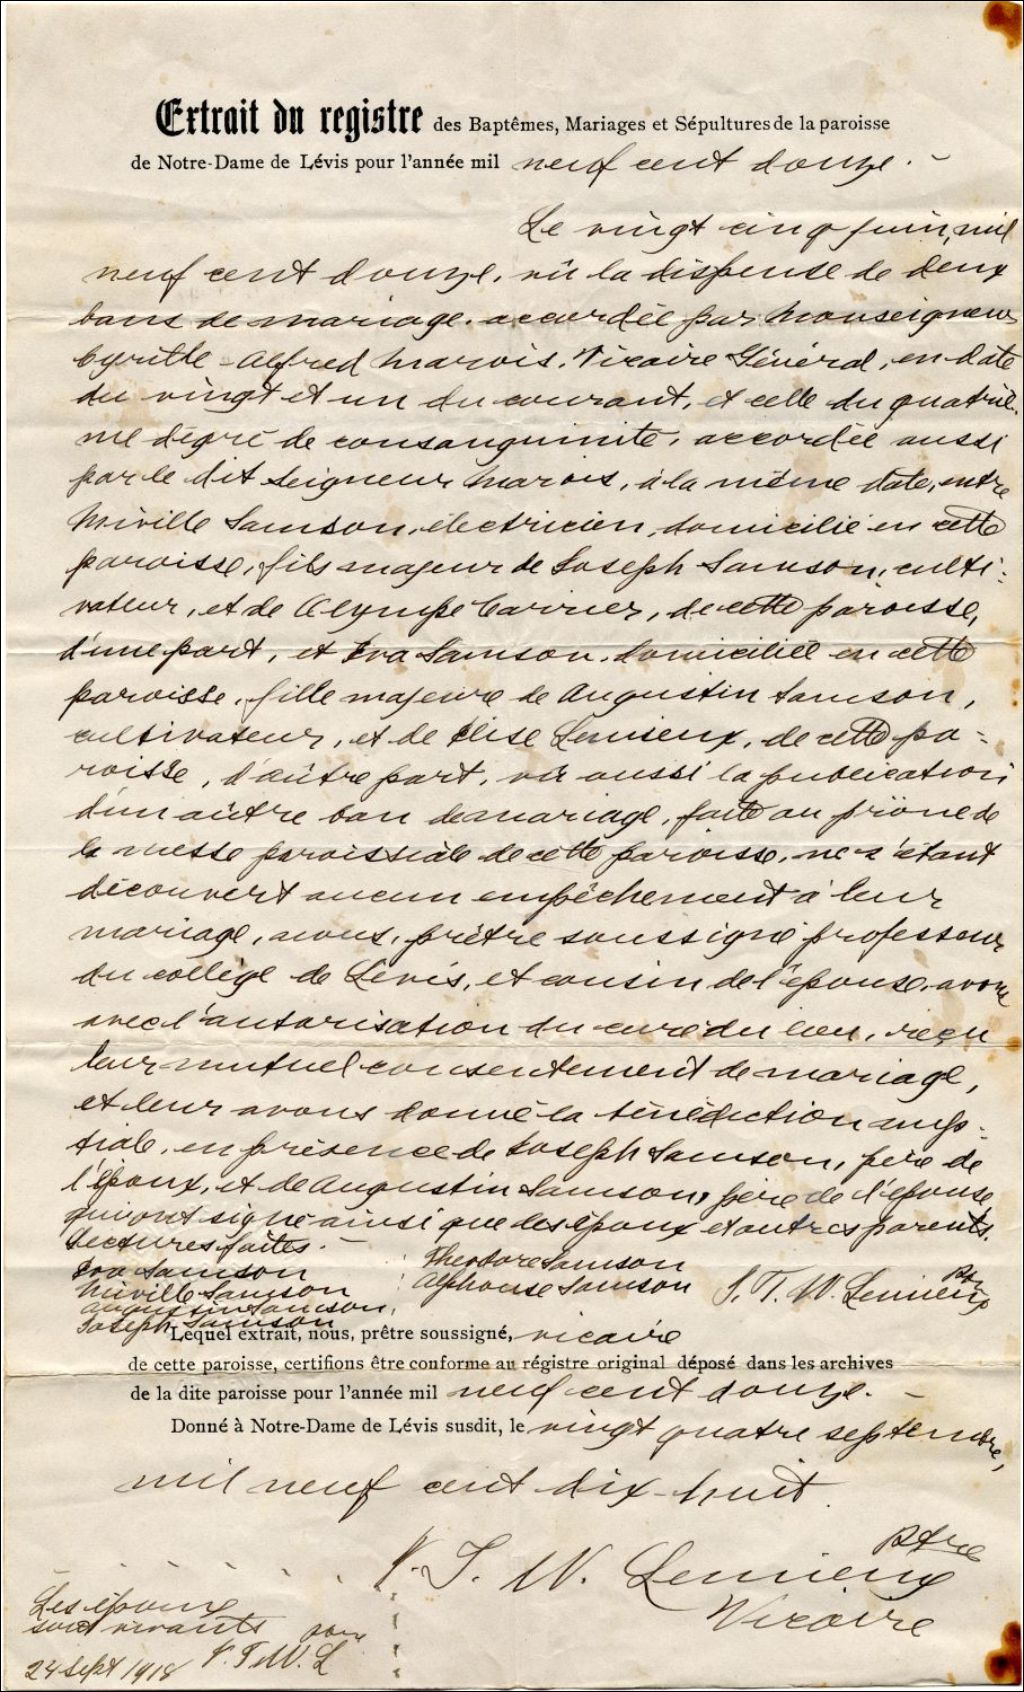 Extrait du registre des Baptêmes, Mariages et Sépultures de la paroisse
de Notre-Dame de Lévis pour l'année mil neuf cent douze. -
Le vingt cinq juin, mil
neuf cent douze, vu la dispense de deux
bans de mariage, accordée par Monseigneur
Cyrille-Alfred Marois, Vicaire Général, en date
du vingt et un du courant, et celle du quatriè-
me degré de consanguinité, accordée aussi
par le dit Seigneur Marois, à la même date, entre
Miville Samson, électricien, domicilié en cette
paroisse, fils majeur de Joseph Samson, culti-
vateur, et de Olympe Carrier, de cette paroisse,
d'une part, et Eva Samson, domiciliée en cette
paroisse, fille majeure de Augustin Samson,
cultivateur, et de Elise Lemieux, de cette pa-
roisse, d'autre part, vu aussi la publication
d'un autre ban de mariage, faite au prône de
la messe paroissiale de cette paroisse, ne s'étant
découvert aucun empêchement à leur
mariage, nous, prêtre soussigné professeur
du collège de Lévis, et cousin de l'épouse, avons
avec l'autorisation du curé du lieu, reçu
leur mutuel consentement de mariage,
et leur avons donné la bénédiction nup-
tiale, en présence de Joseph Samson, père de
l'époux, et de Augustin Samson, père de l'épouse,
qui ont signé ainsi que les époux et autres parents.
Lectures faites. -
Eva Samson
Miville Samson
Augustin Samson,
Joseph Samson
Theodore Samson
Alphonse Samson
J. T. W. Lemieux Ptre
Lequel extrait, nous, prêtre soussigné, vicaire
de cette paroisse, certifions être conforme au régistre original déposé dans les archives
de la dite paroisse pour l'année mil neuf cent douze. -
Donné à Notre-Dame de Lévis susdit, le vingt quatre septembre,
mil neuf cent dix-huit.
J. W. Lemieux Ptre
Vicaire
Les époux
sont vivants
24 sept 1918